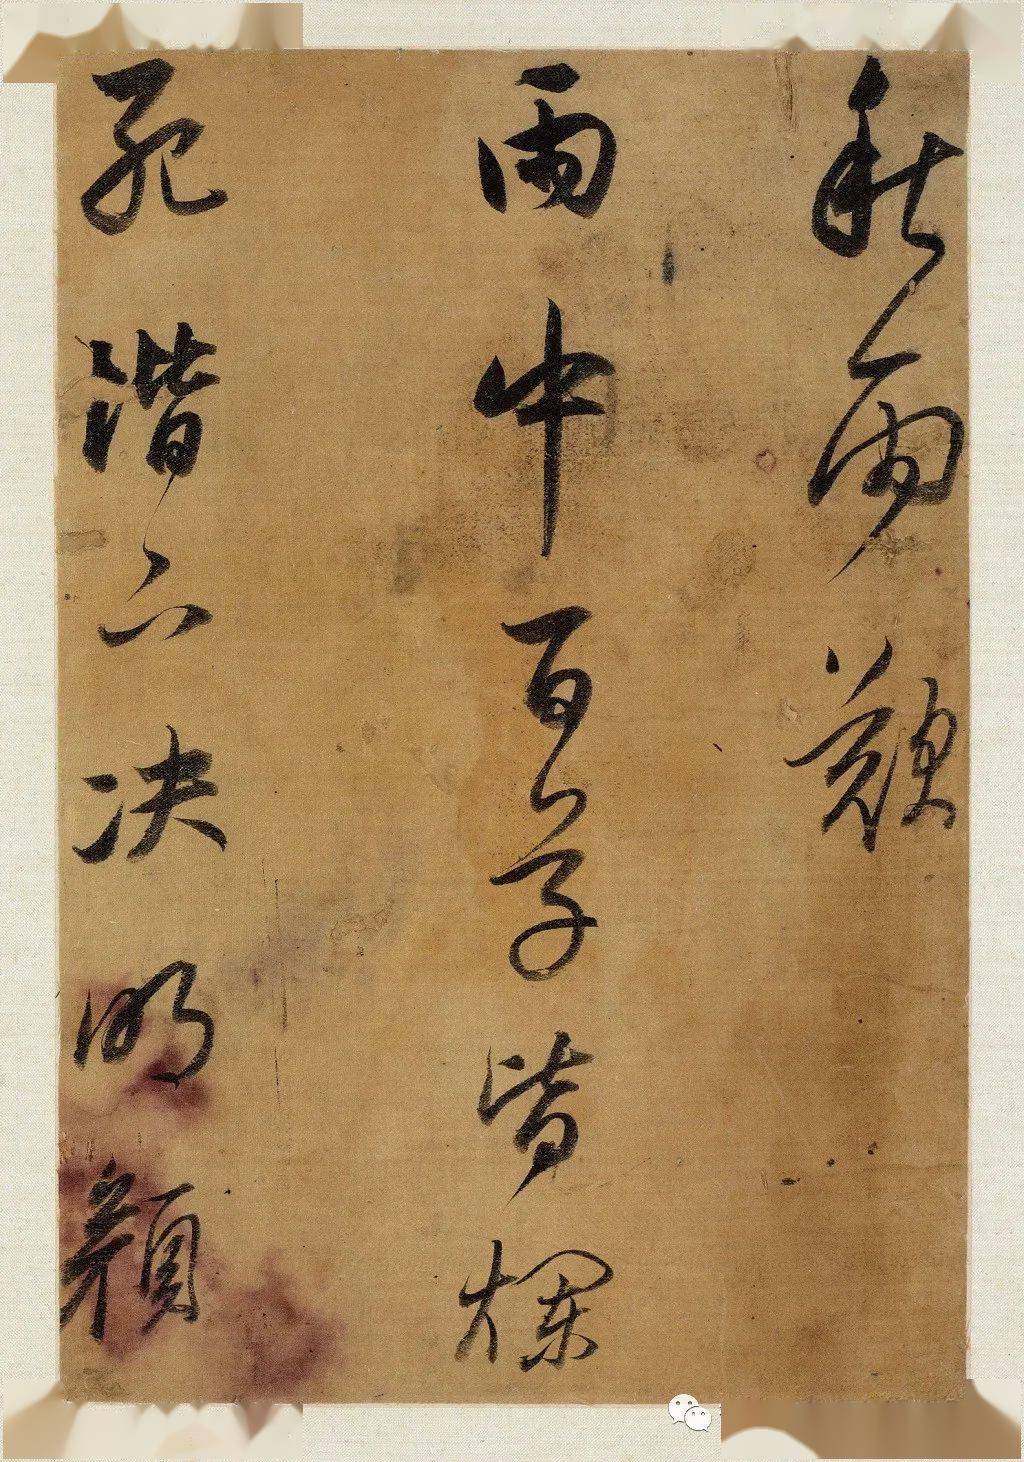 秋雨歎
雨中百草皆爛
死階下决明顏